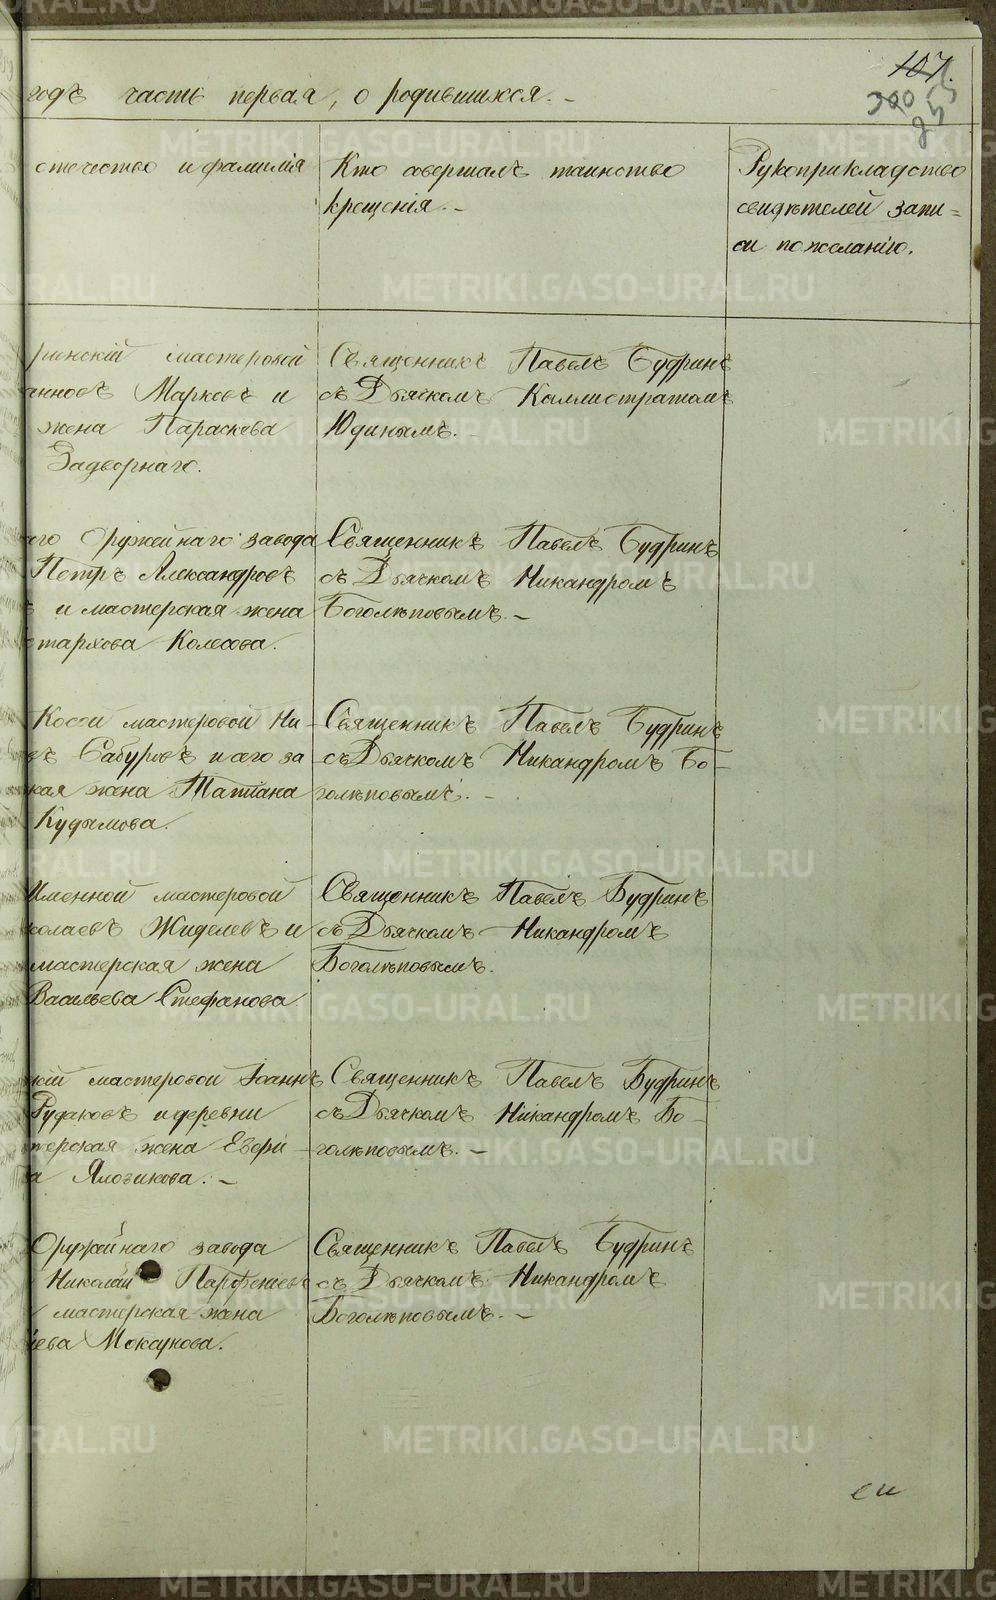 107.
300
255
годъ часть первая, о родившихся. –
отчество и фамилія
Кто совершалъ таинство
крещенія. –
Рукоприкладство
свидѣтелей запи=
си по желанію.
ринскій мастеровой
анновъ Марковъ и
жена Параскева
Задворнаго.
Священникъ Павелъ Будринъ
съ Дьячкомъ Каллистратомъ
Юдинымъ. –
его Оружейнаго завода
Петръ Александровъ
ъ и мастерская жена
стархова Колесова.
Священникъ Павелъ Будринъ
съ Дьячкомъ Никандромъ
Боголѣповымъ. –
Косой мастеровой Ни–
въ Сабуровъ и его за
ская жена Татіана
Кудымова.
Священникъ Павелъ Будринъ
съ Дьячкомъ Никандромъ Бо–
голѣповымъ. –
Именной мастеровой
колаевъ Жиделевъ и
мастерская жена
Васильева Стефанова
Священникъ Павелъ Будринъ
съ Дьячкомъ Никандромъ
Боголѣповымъ.
кій мастеровой Іоаннъ
Рудаковъ и деревни
терская жена Евфи–
а Яловикова. –
Священникъ Павелъ Будринъ
съ Дьячкомъ Никандромъ Бо–
голѣповымъ. –
Оружейнаго завода
Николай Парфеніевъ
мастерская жена
іева Моксунова.
Священникъ Павелъ Будринъ
съ Дьячкомъ Никандромъ
Боголѣповымъ. –
METRIKI.GASO-URAL.RU